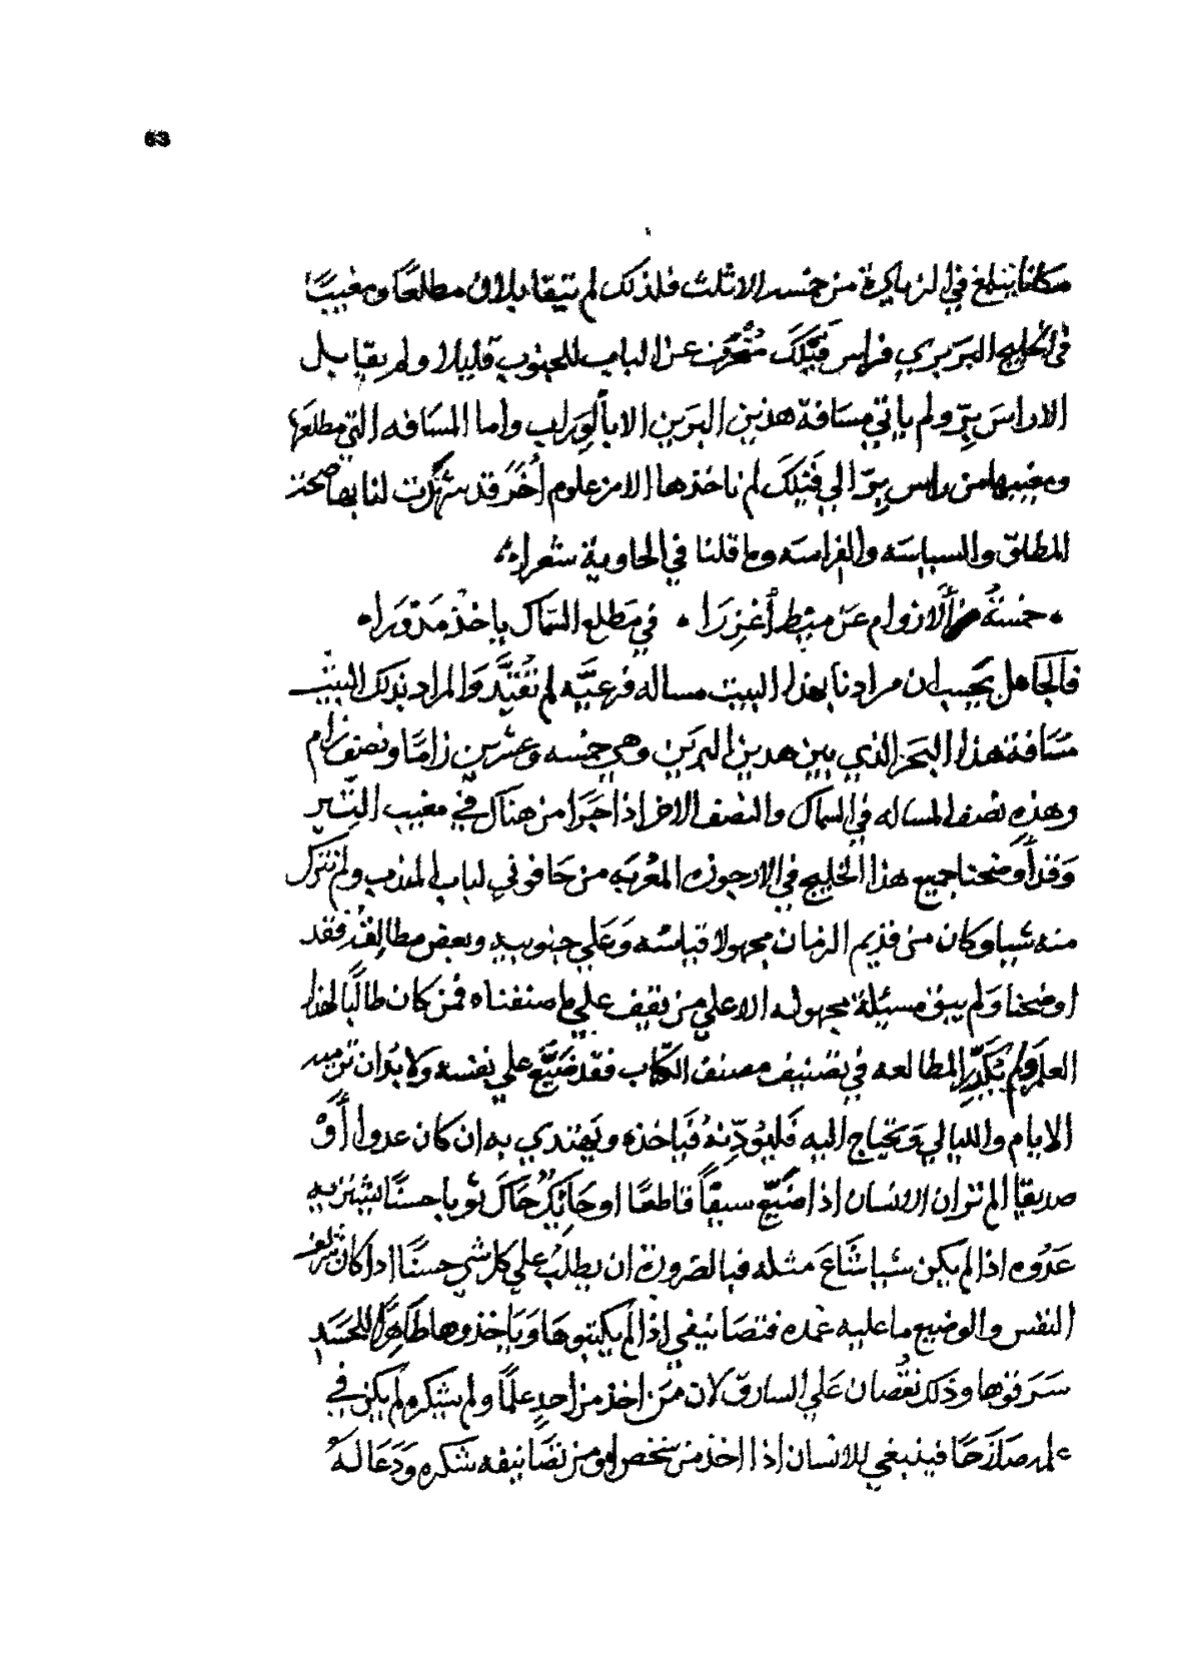 63
مكانا يبلغ في الزيادة من خمسه الا ثلث فلذلك لم يتيقا بلان مطلعًا ومغيبًا
في الخليج البربري فراس فَيْلَكَ منحرف عن الباب للجنوب قليلا ولم يقابل
الاراسَ بِرّ ولم ياتي مسافة هذين البرين الا بالوراب واما المسافه التي مطلعها
ومغيبها من راس برّ الي فَيْلَكَ لم ناخذها الا من علوم أُخَر قد شهدت لنا بها صحت
المطلق والسياسه والفراسه وما قلنا في الحاوية شعرا
خمسَةُ الازوام عن ميط أغزرَا ٠ في مطلع السماك ياخذ مدورا ٠
فالجاهل يحسب ان مرادنا بهذا البيت مساله فرعيّه لم تقيَّد والمراد بذلك البيت
مسَافة هذا البحر الذي بين هدين البرين وهي خمسه وعشرين زامًا ونصف زام
وهذه نصف المساله في السماك والنصف الاخر اذا جَرَا من هناك في مغيب التير
وقد أوضحنا جميع هذا الخليج في الارجوزه المعربَه من حافوني لباب المندب ولم نترك
منه شيا وكان من قديم الزمان مجهولا قياسُه وعلي جنوبيه وبعض مطالقه فقد
اوضحنا ولم يبق مسئلة مجهوله الا علي من يقف علي ما صنفناه فمن كان طالبًا لهذا
العلم ولم يُكدِّر المطالعه في تصنيف مصنف الكتاب فقد ضَيَّع علي نفسه ولا بُد ان ترميه
الايام والليالي وَيحتاج اليه فليُودِّنهُ فياخذه ويَهتدي به ان كان عدوا أَوْ
صديقا الم تر ان الانسان اذا ضَيَّع سيفًا قاطعًا او حَايكٌ حَاكَ ثوبا حسنًا يشتريه
عَدُوه اذا لم يكن شيا شَاعَ مثله فبالضرورة ان يطلبُ علي كل شي حسنًا اذا كان شريف
النفس والوضيع ما عليه عمده فتصَانيفي إذا لم يكتبوها وَيَاخذوها ظاهِرًا للحسَد
سَرقوها وذلك نُقصان عَلي السارق لان مَن اخذ من احدٍ علمًا ولم يشكره لم يكن في
علمه صلاحًا فينبغي للانسان اذا اخذ من شخص او من تصَانيفه شكره ودَعَا لهُ